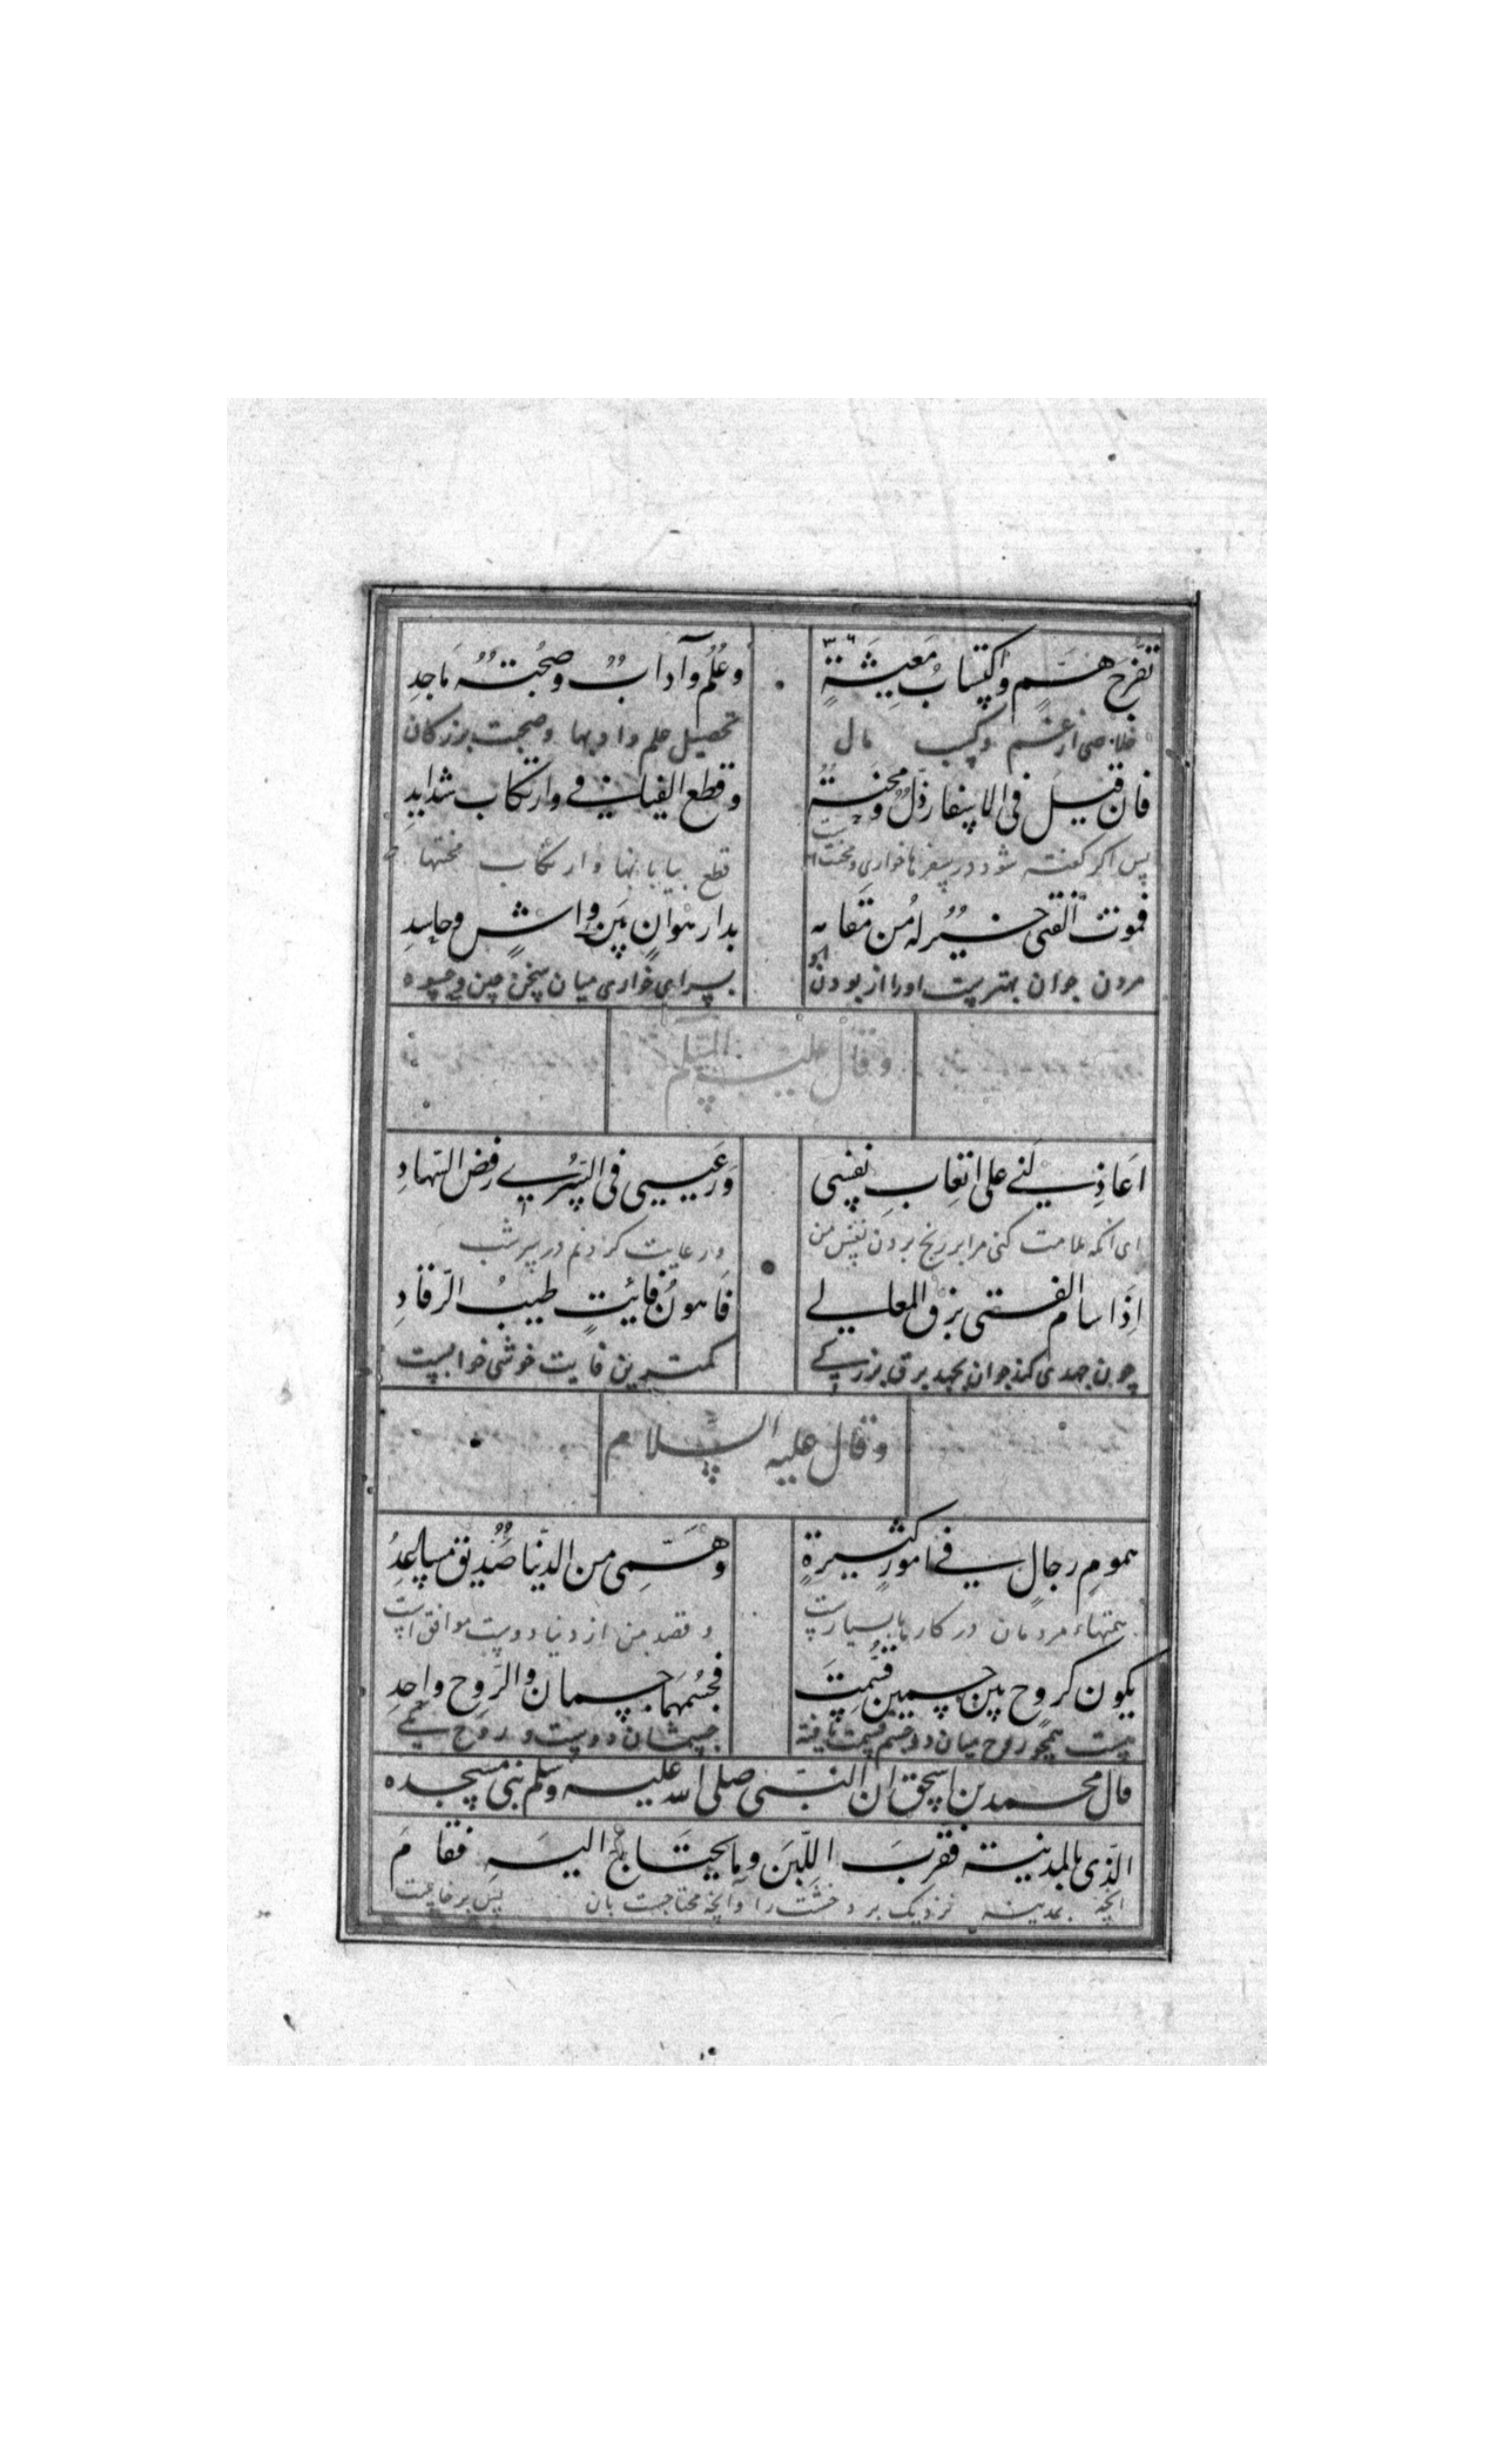 تفرج هم واکتساب معیشة وعلم وآداب وصحبة ماجد
خلاصی از غم وکسب مال تحصیل علم وادبها وصحبت بزرکان
فان قیل فی الاسفار ذل ومحنة وقطع الفیافی وارتکاب شداید
پس اکر کفته شود در سفرها خواری ومحنت است قطع بیابانها وارتکاب محنتها
فموت الفتی خیر له من مقامه بدار هوان بین واش وحاسد
مردن جوان بهترست اورا از بودن او بسرای خواری میان سخن چین و
وقال علیه السلم
اعاذلنی علی اتعاب نفسی ورعیی فی السری رفض السهاد
ای انکه ملامت کنی مرا بر رنج بردن نفس من ورعایت کردنم در سر شب
اذا سام الفتی برق المعالی فاهون فائت طیب الرقاد
چون جهدی کند جوان بجید برق بزرکی کمترین فایت خوشی خوابست
وقال علیه السلام
هموم رجال فی امور کثیرة وهمی من الدنیا صدیق مساعد
همتهاء مردمان در کارها بسیارست وقصد من از دنیا دوست موافق است
یکون کروح بین جسمین قسمت فجسمهما جسمان والروح واحد
هست همچو روح میان دو جسم قسمت یافته جسمشان دوست و روح یکی
قال محمد بن اسحق ان النبی صلی الله علیه وسلم بنی مسجده
الذی بالمدینة فقرب اللبن وما یحتاج الیه فقام
انچه بمدینه نزدیک برد خشت را وآنچه محتاجست بان پس برخاست